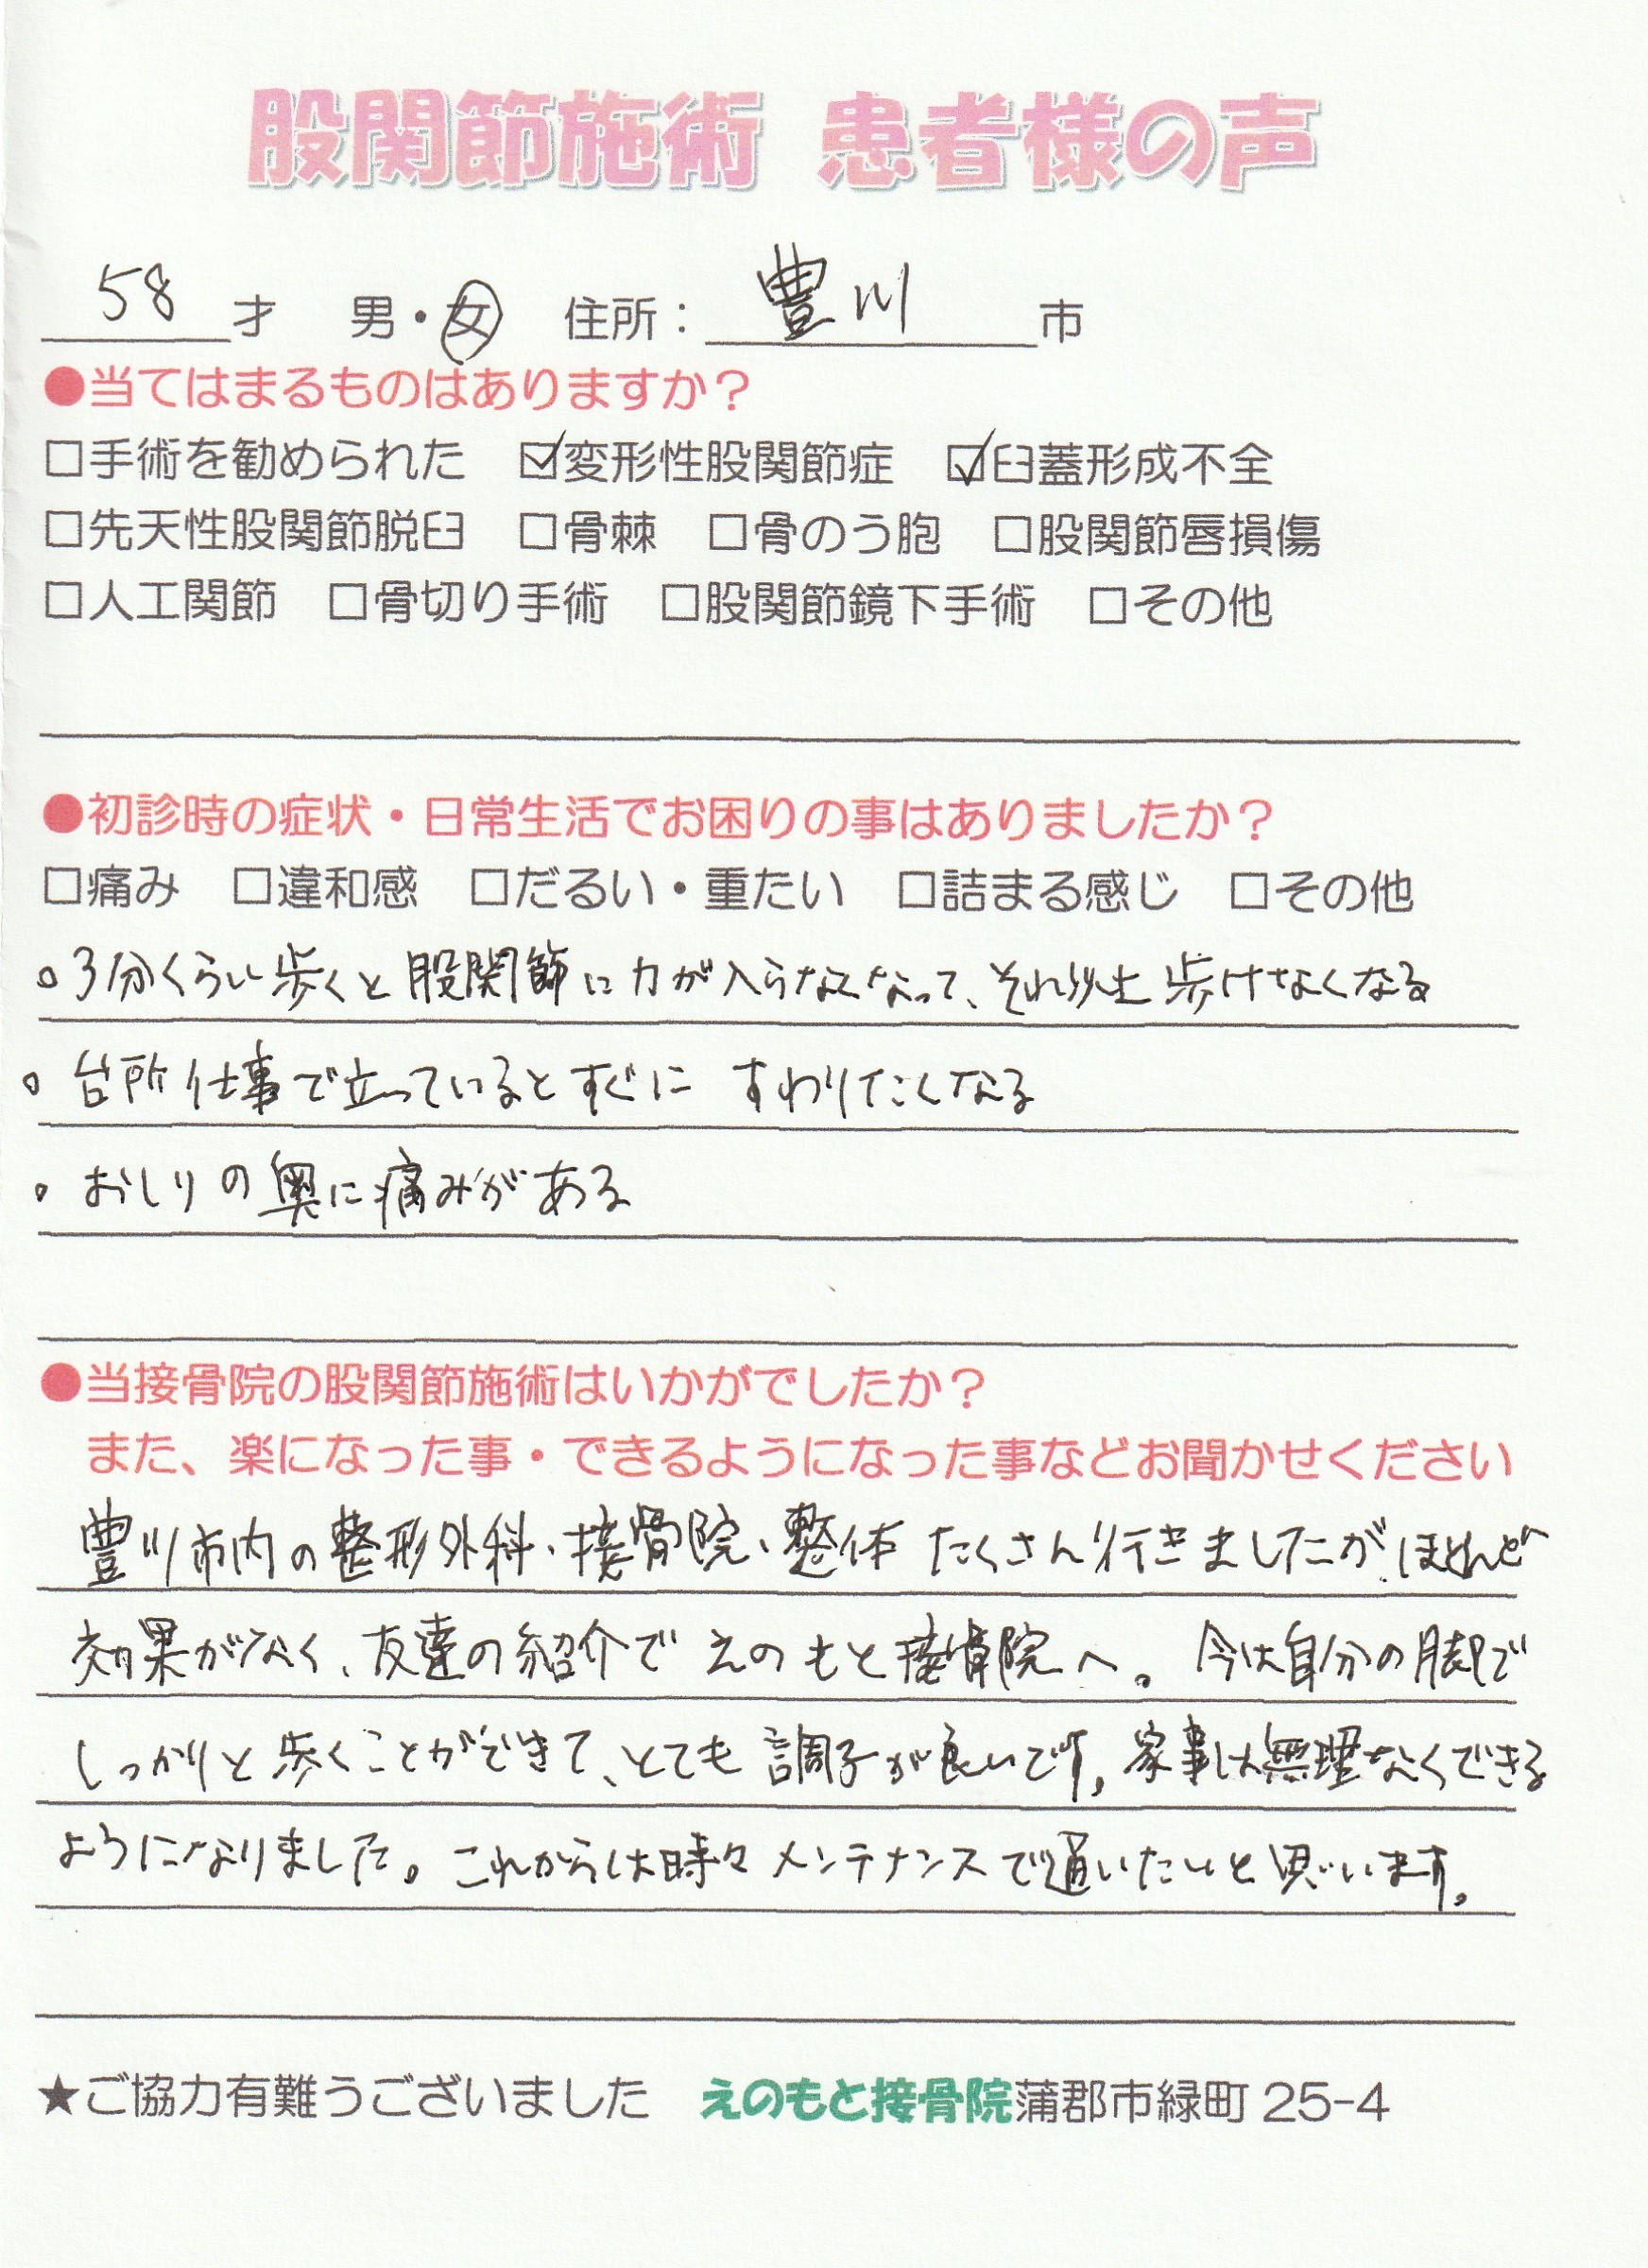 股関節施術 患者様の声
58才 男・女 住所：豊川市
●当てはまるものはありますか？
□手術を勧められた ☑変形性股関節症 ☑臼蓋形成不全
□先天性股関節脱臼 □骨棘 □骨のう胞 □股関節唇損傷
□人工関節 □骨切り手術 □股関節鏡下手術 □その他
●初診時の症状・日常生活でお困りの事はありましたか？
□痛み □違和感 □だるい・重たい □詰まる感じ □その他
。3分くらい歩くと股関節に力が入らなくなって、それ以上歩けなくなる
。台所仕事で立っているとすぐに すわりたくなる
。おしりの奥に痛みがある
●当接骨院の股関節施術はいかがでしたか？
また、楽になった事・できるようになった事などお聞かせください
豊川市内の整形外科、接骨院、整体 たくさん行きましたが、ほとんど
効果がなく、友達の紹介で えのもと接骨院へ。 今は自分の脚で
しっかりと歩くことができて、とても調子が良いです。家事は無理なくできる
ようになりました。これからは時々メンテナンスで通いたいと思います。
★ご協力有難うございました えのもと接骨院蒲郡市緑町 25-4